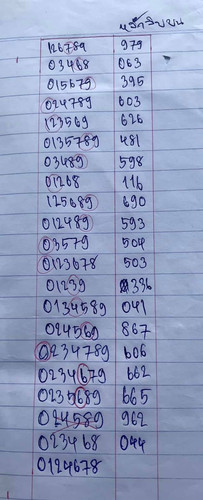 หลักสิบบน
126789 979
03468 063
015679 395
024789 603
123569 626
0135789 481
03489 598
01268 116
125689 690
012489 593
03579 504
0123678 503
01239 336
0134589 041
024569 867
0234789 606
0234679 662
0235689 665
024589 962
023468 044
0124678